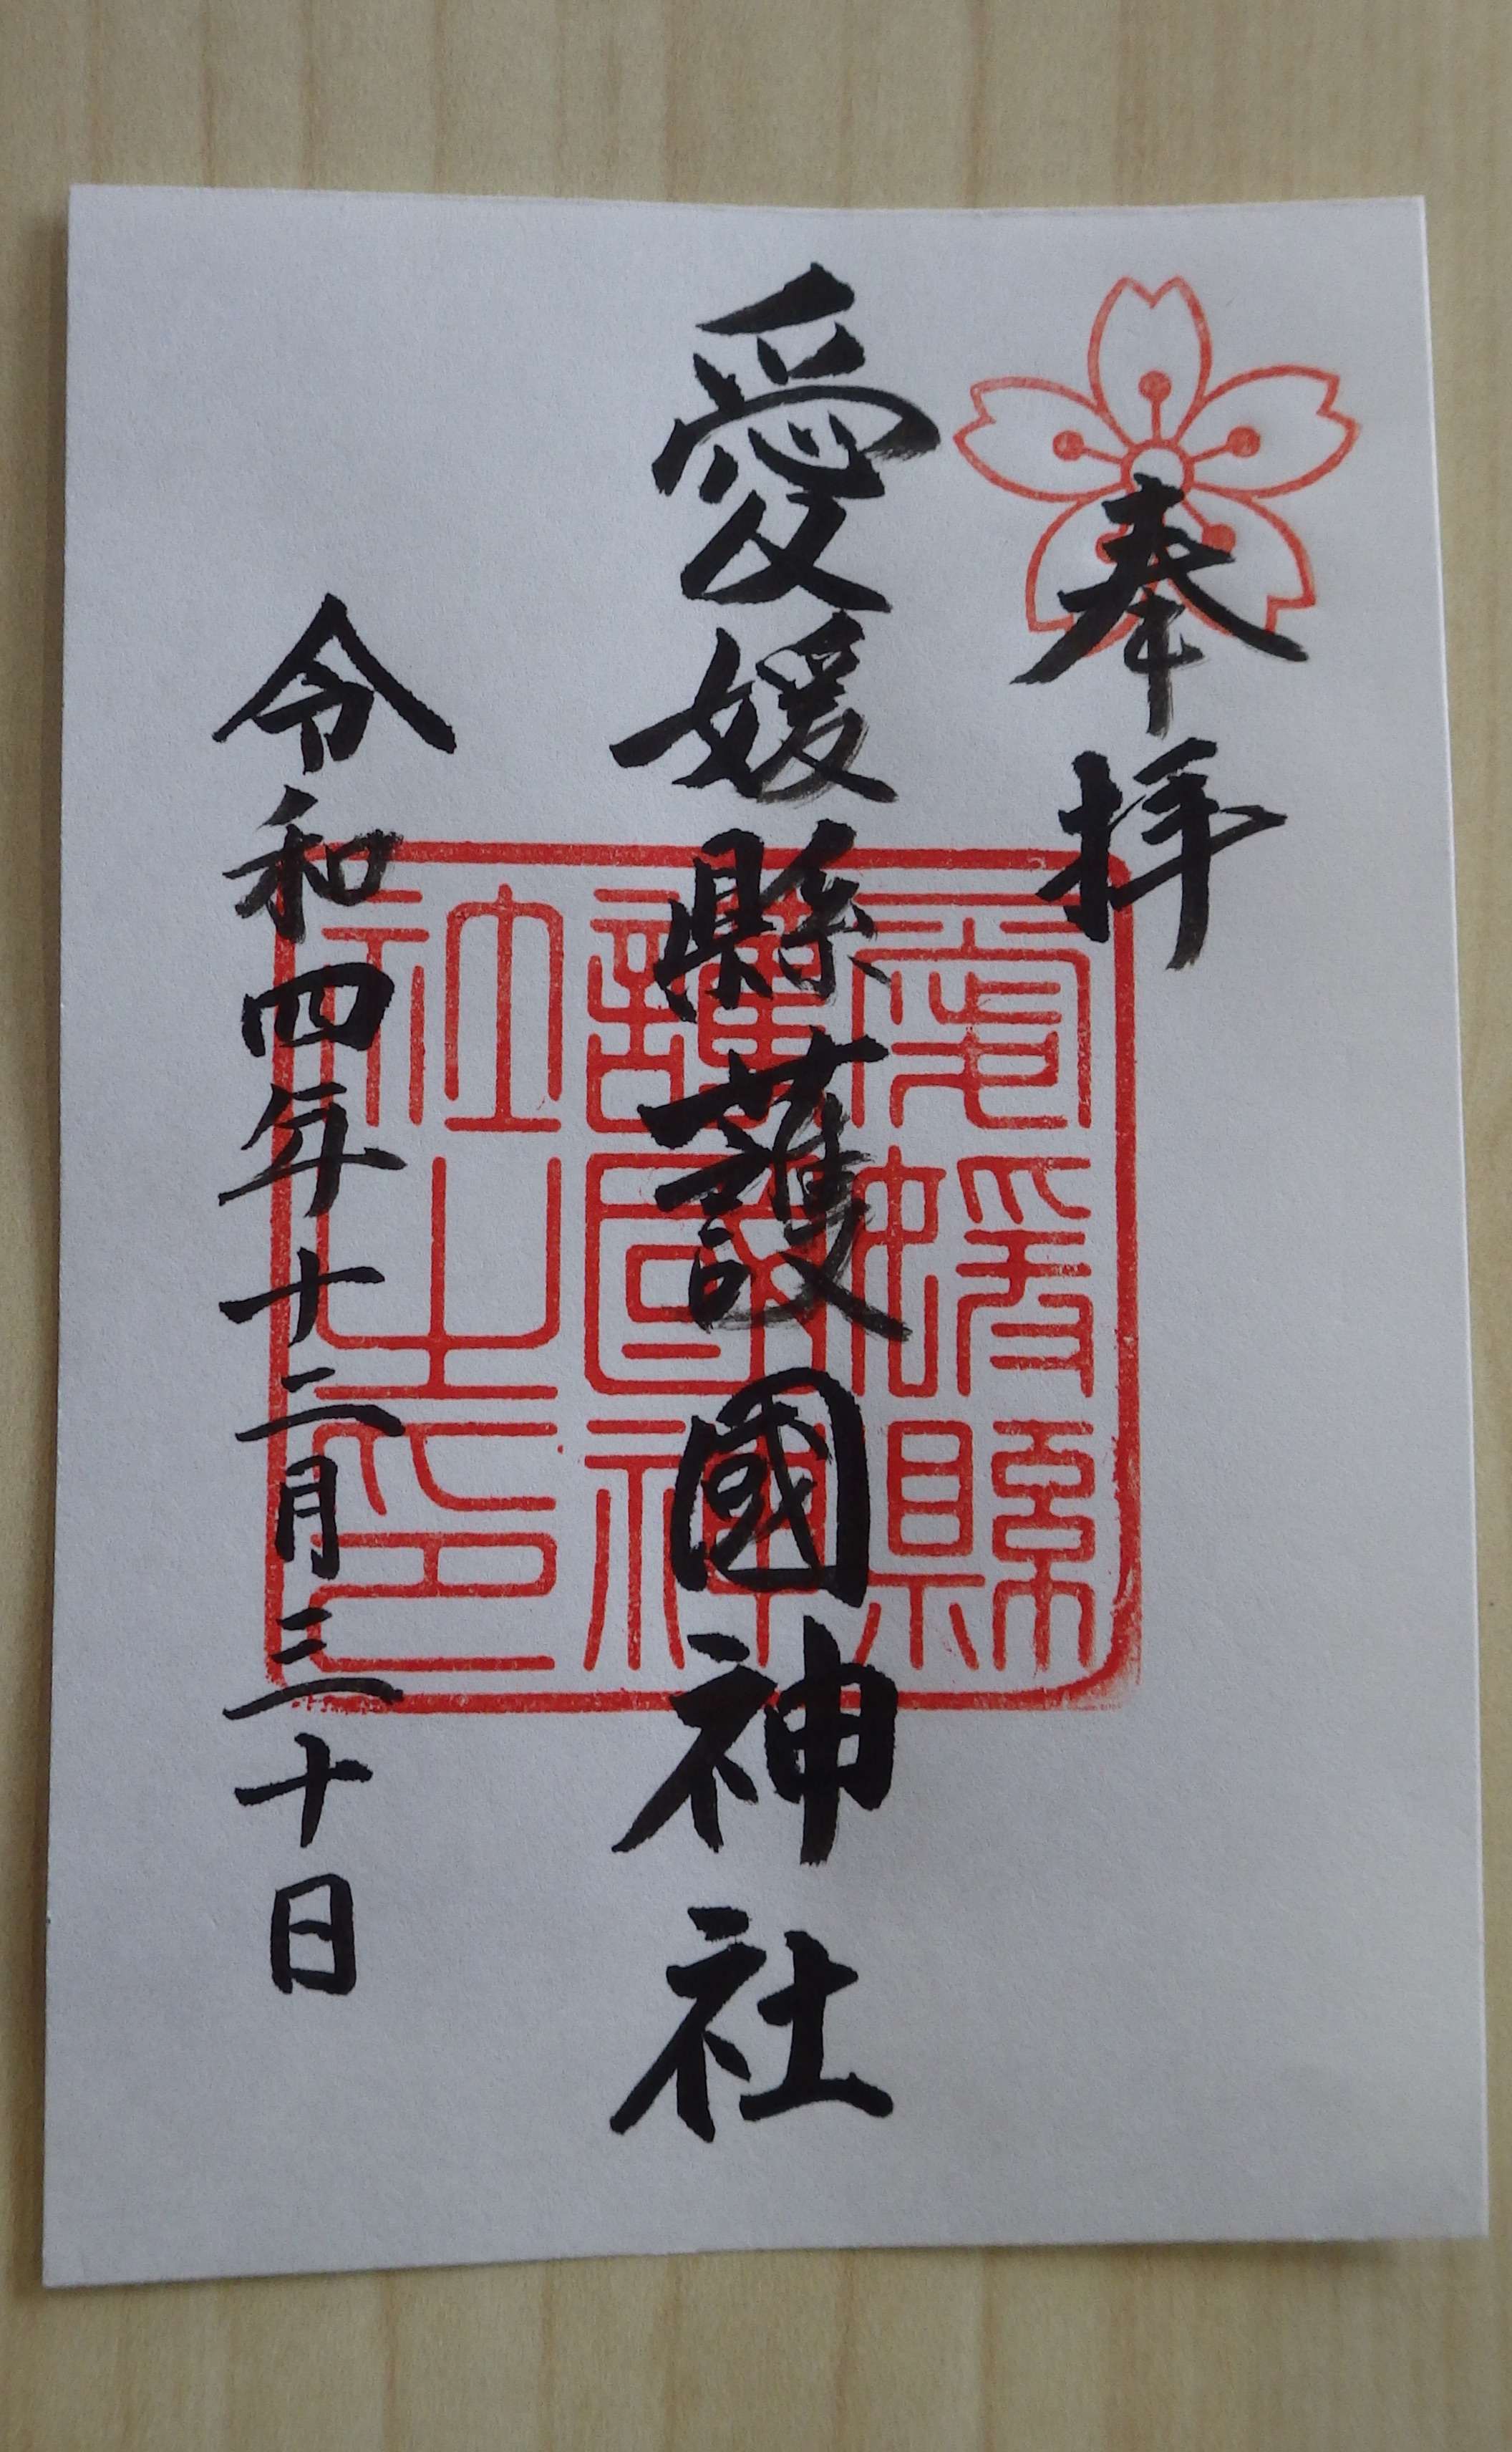 奉拝
愛媛縣護國神社
令和四年十二月三十日
愛媛縣
護國神
社之印